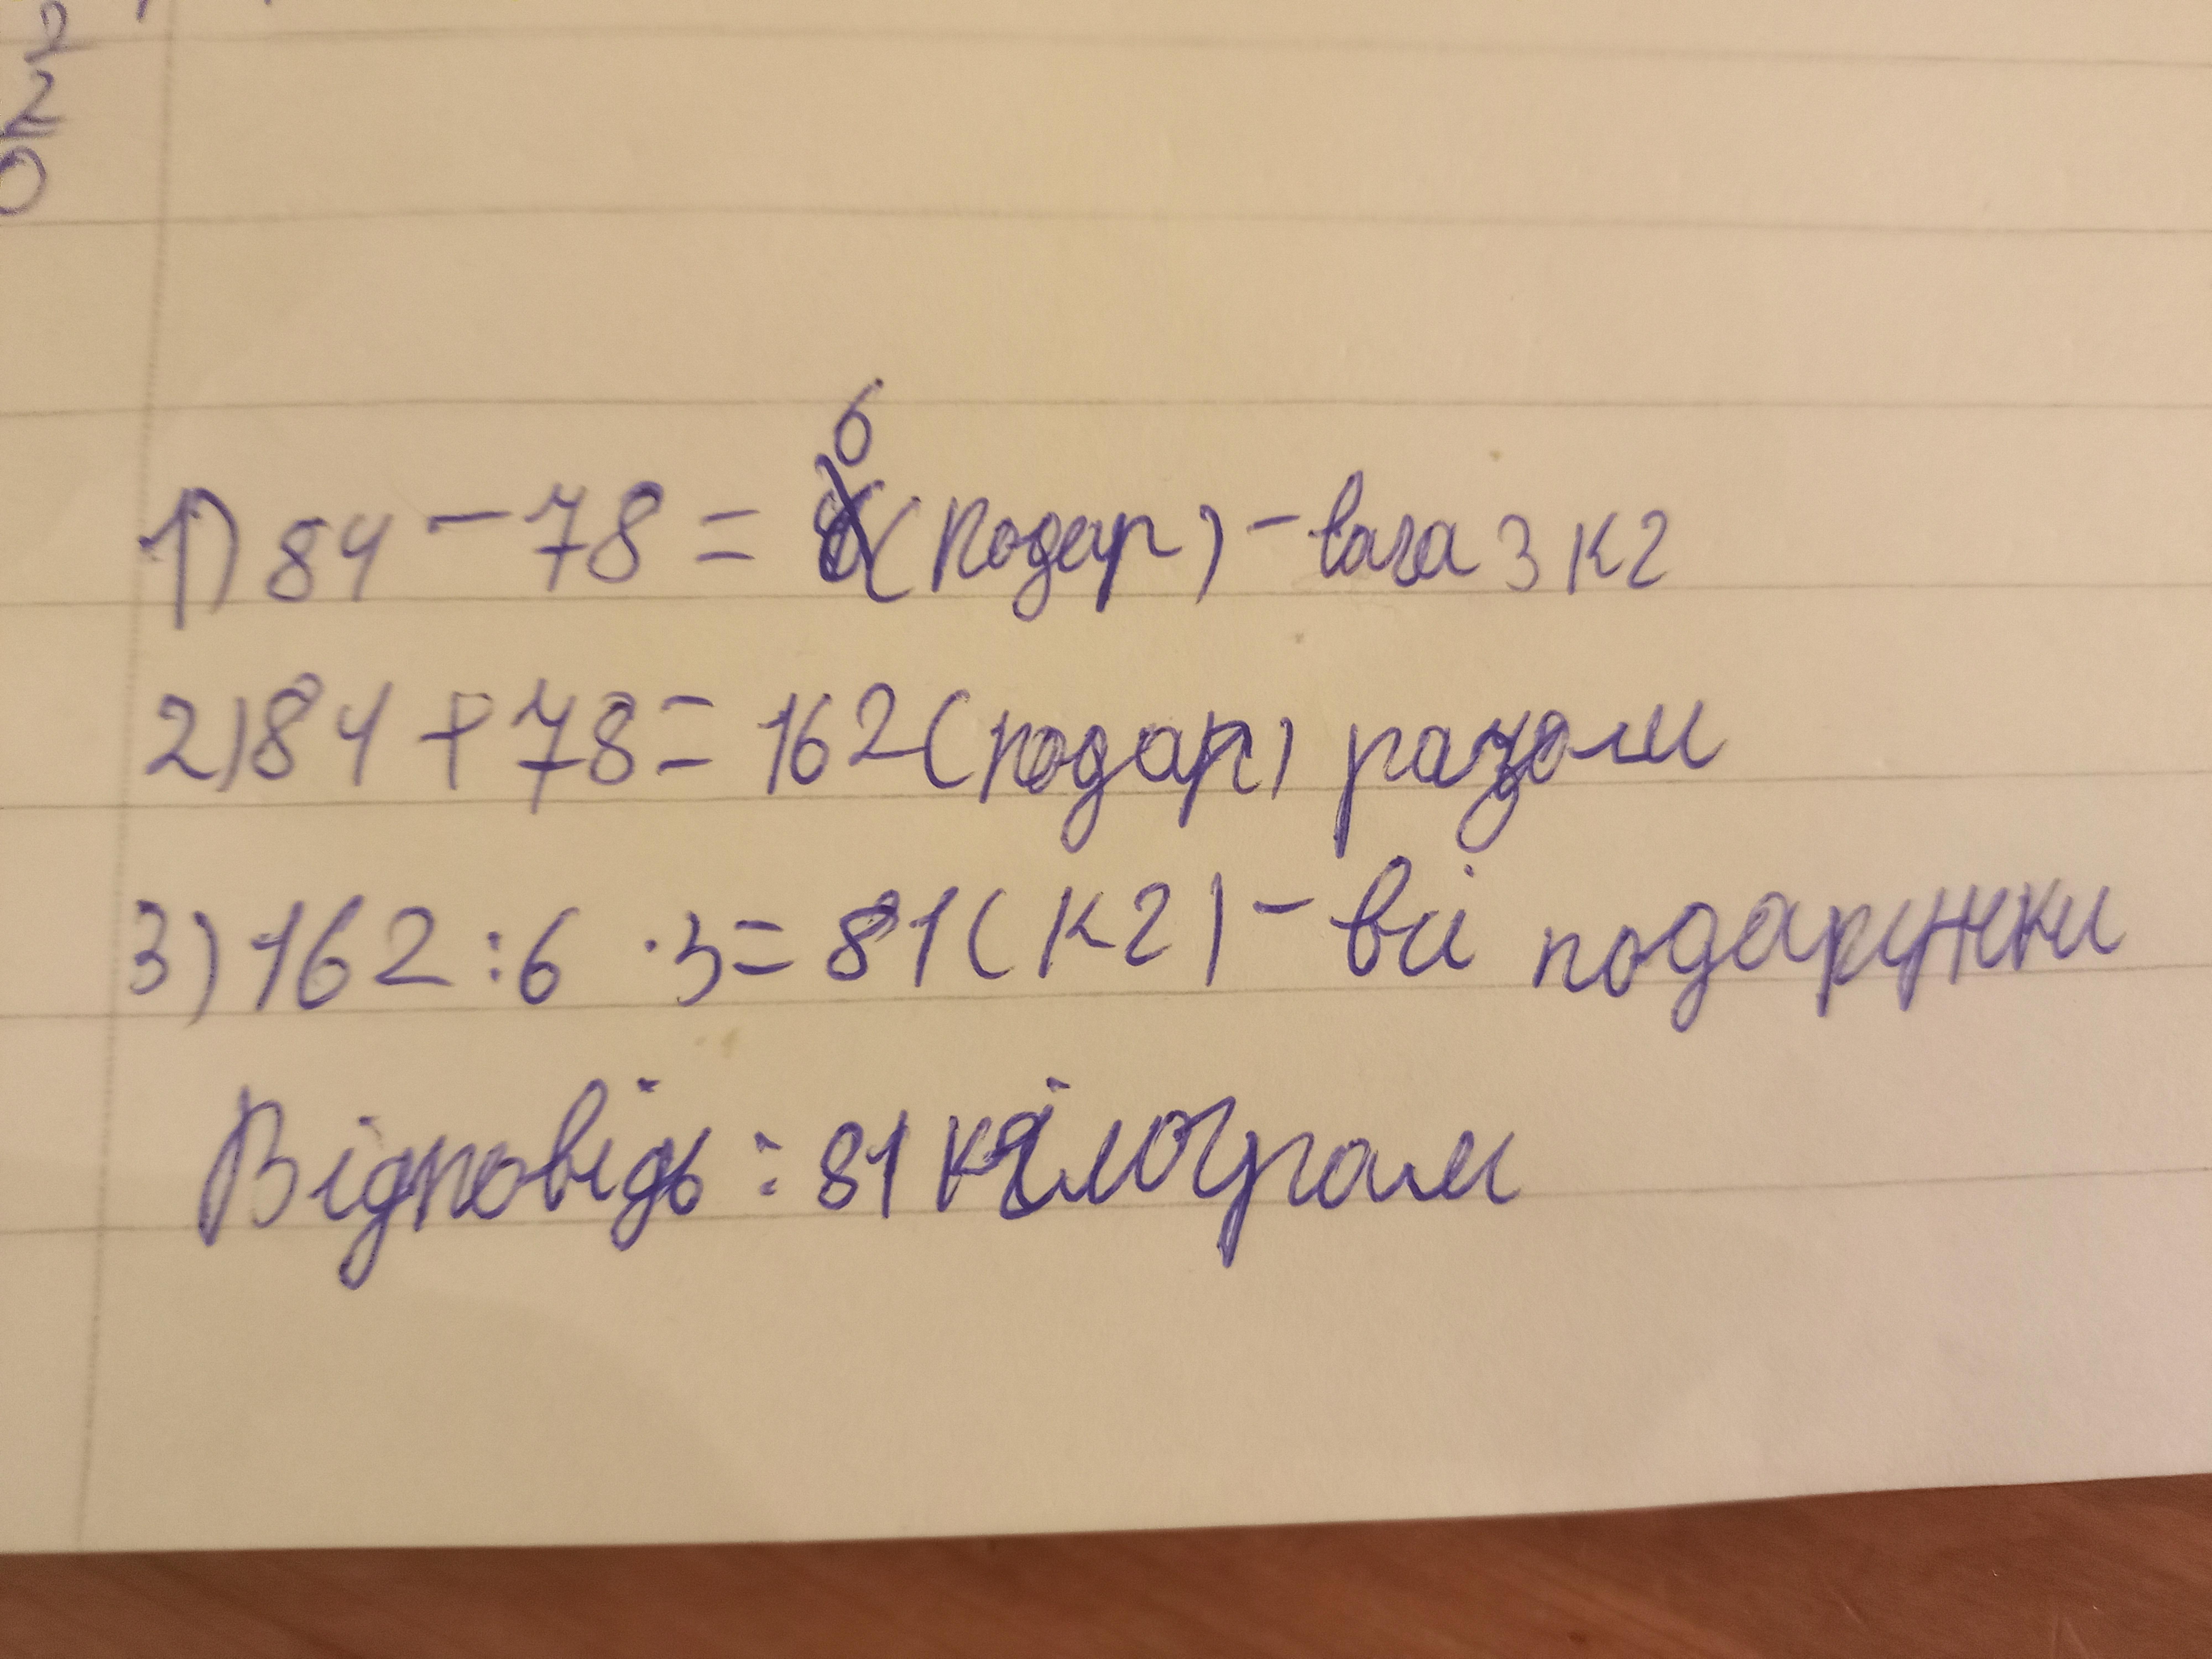 2
2
0
1) 84 - 78 = 6 (подар) - вага 3 кг
2) 84 + 78 = 162 (подар) разом
3) 162 : 6 · 3 = 81 (кг) - всі подарунки
Відповідь : 81 кілограм